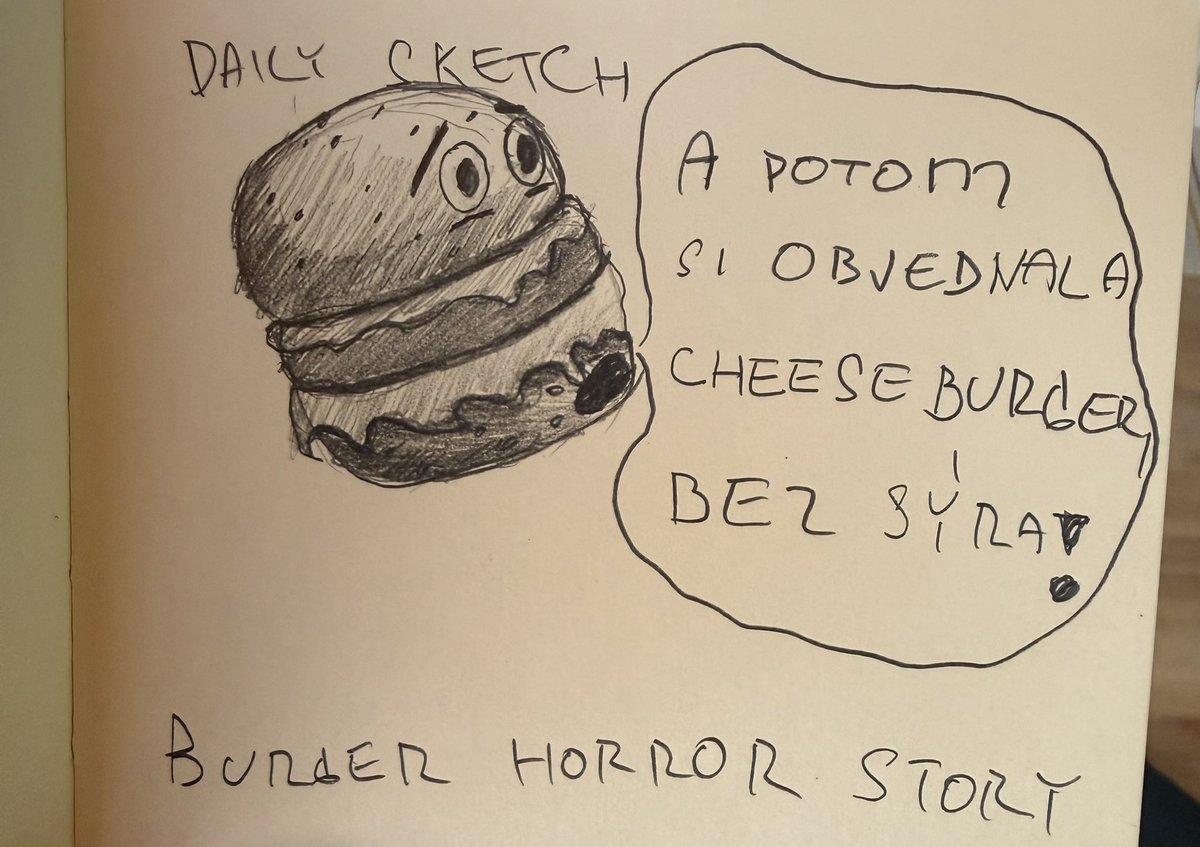 DAILY SKETCH
A POTOM
SI OBJEDNALA
CHEESEBURGER,
BEZ SÝRA!
BURGER HORROR STORY